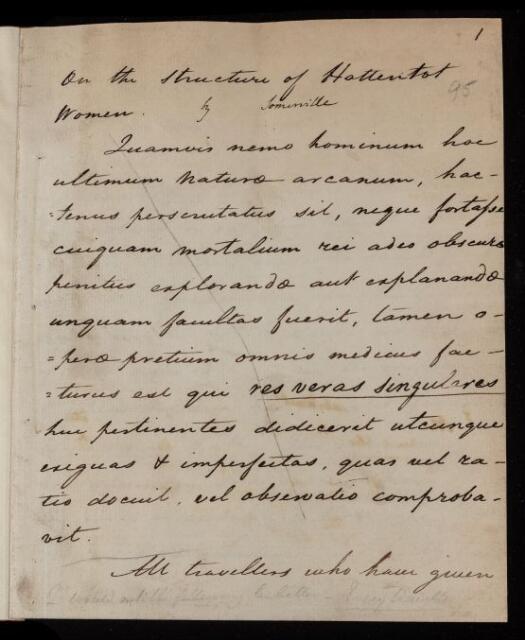 1
On the structure of Hottentot
95
Women. by Somerville
Quamvis nemo hominum hoc
ultimum Naturæ arcanum, hac-
=tenus perscrutatus sit, neque fortasse
cuiquam mortalium rei adeo obscuræ
penitus explorandæ aut explanandæ
unquam facultas fuerit, tamen o-
=peræ pretium omnis medicus fac-
=turus est qui res veras singulares
huc pertinentes didicerit utcunque
exiguas & imperfectas, quas vel ra-
tio docuit, vel observatio comproba-
vit.
All travellers who have given